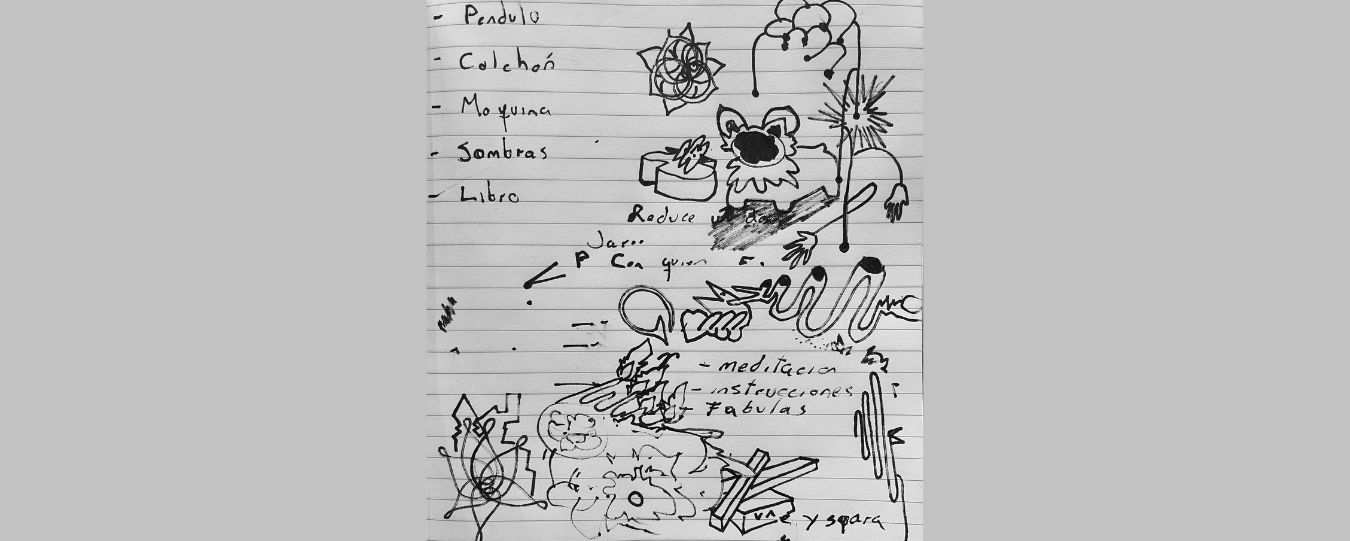 - Pendulo
- Colchón
- Maquina
- Sombras
- Libro
Reduce
P Con quien E.
- meditacion
- instrucciones
- Fabulas
une y separa